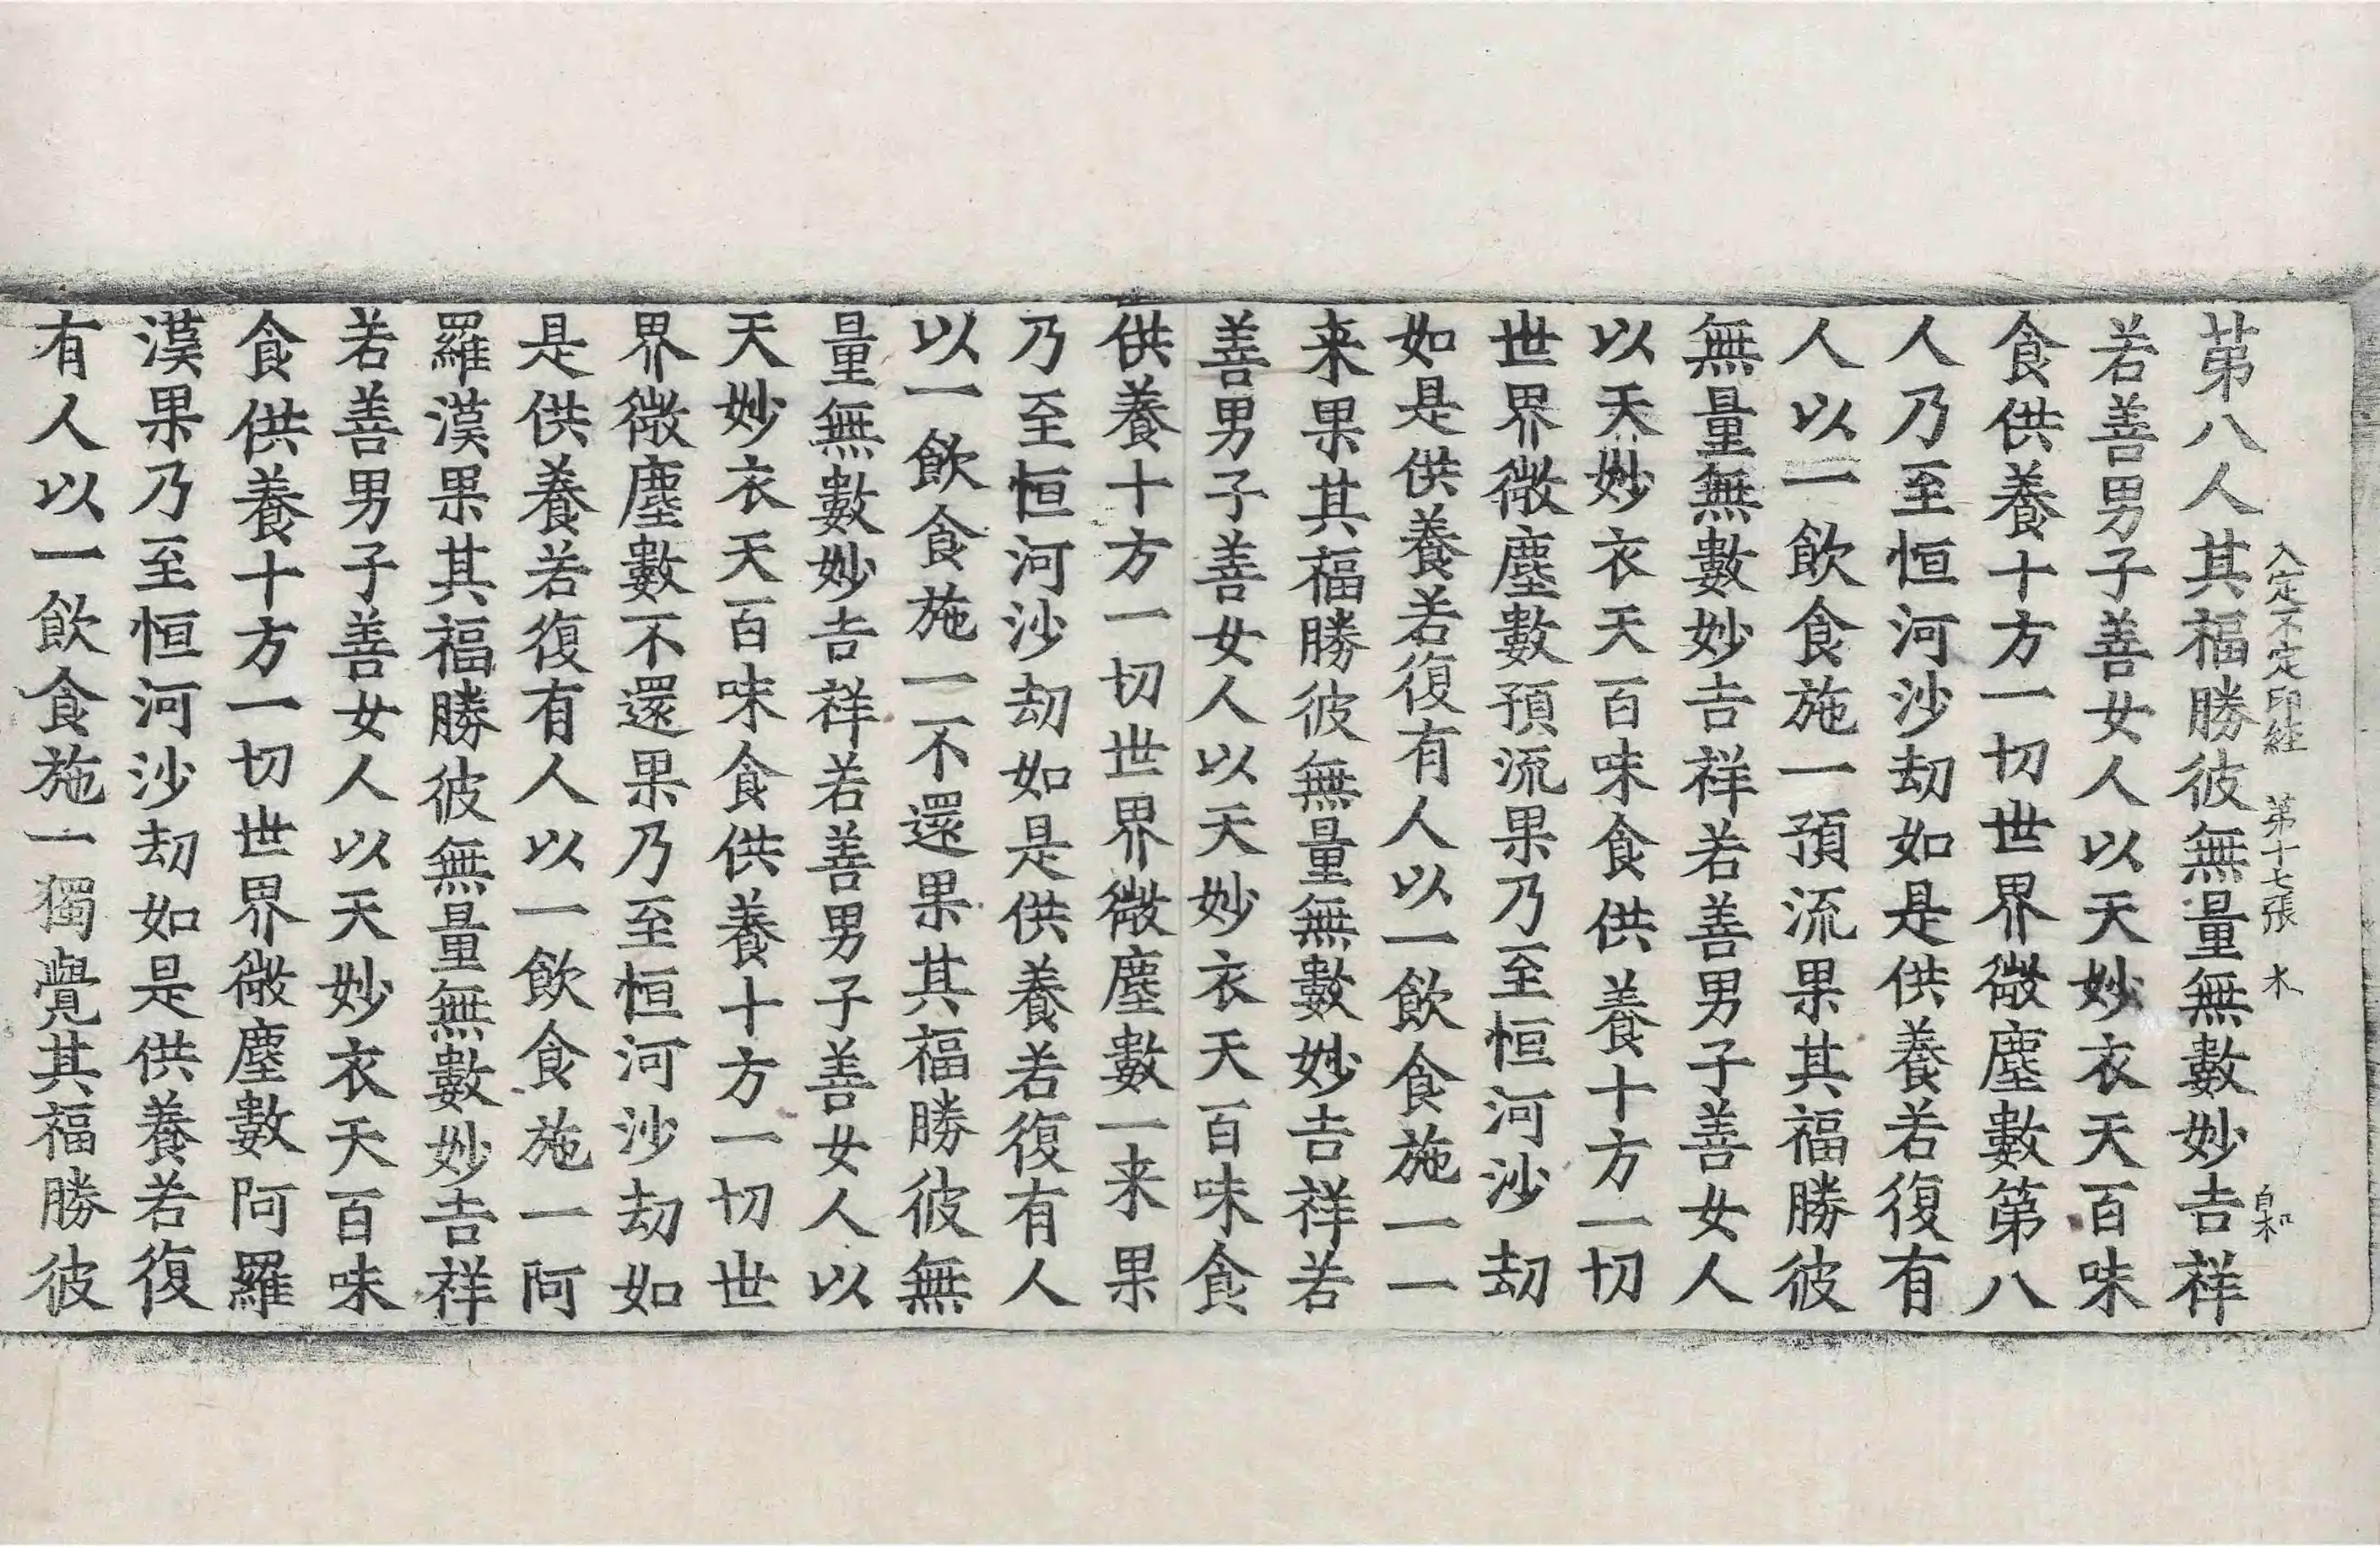 入定不定印経　第十七張　木
自和
苐八人其福勝彼無量無數妙吉祥
若善男子善女人以天妙衣天百味
食供養十方一切世界微塵數第八
人乃至恒河沙劫如是供養若復有
人以一飲食施一預流果其福勝彼
無量無數妙吉祥若善男子善女人
以天妙衣天百味食供養十方一切
世界微塵數預流果乃至恒河沙劫
如是供養若復有人以一飲食施一一
来果其福勝彼無量無數妙吉祥若
善男子善女人以天妙衣天百味食
供養十方一切世界微塵數一来果
乃至恒河沙劫如是供養若復有人
以一飲食施一不還果其福勝彼無
量無數妙吉祥若善男子善女人以
天妙衣天百味食供養十方一切世
界微塵數不還果乃至恒河沙劫如
是供養若復有人以一飲食施一阿
羅漢果其福勝彼無量無數妙吉祥
若善男子善女人以天妙衣天百味
食供養十方一切世界微塵數阿羅
漢果乃至恒河沙劫如是供養若復
有人以一飲食施一獨覺其福勝彼